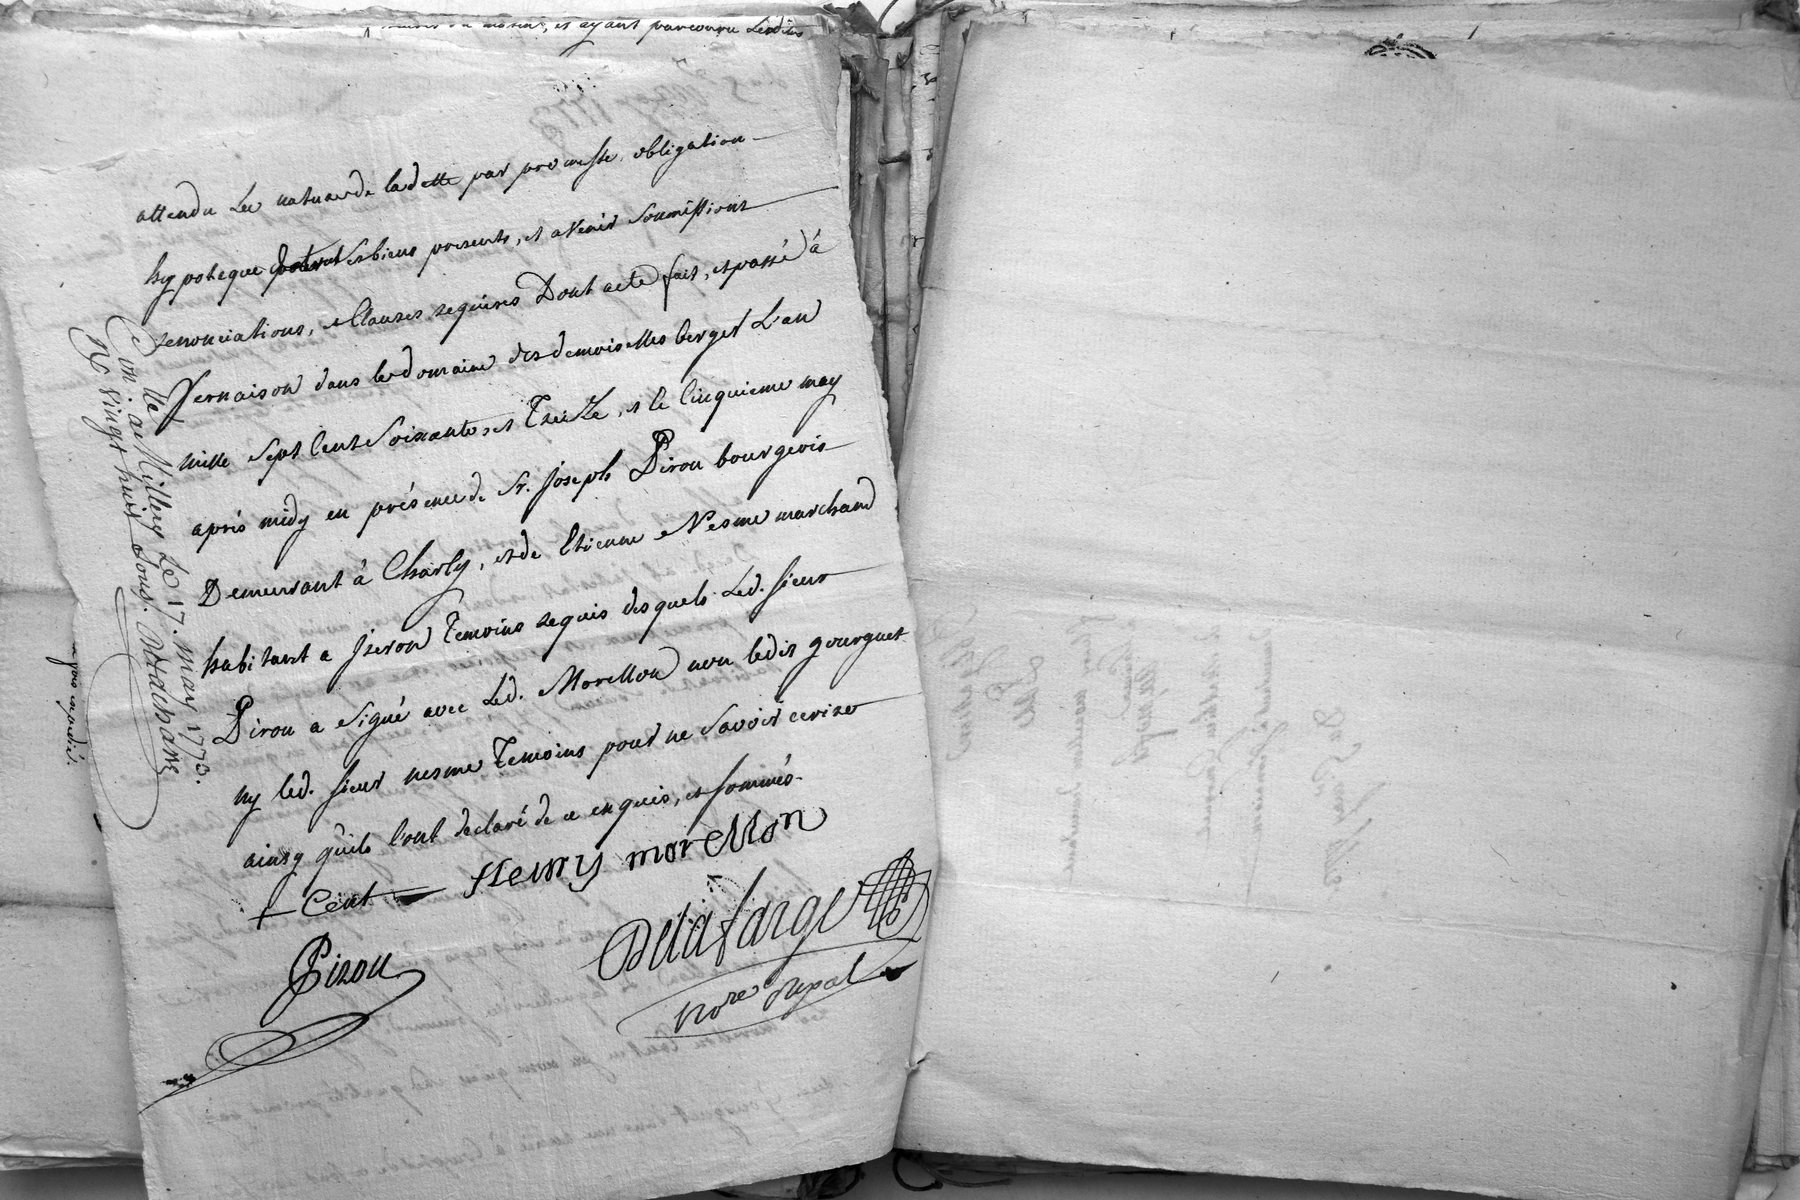 et ayant parcouru
attendu la nature de la dette par promesse, obligation
hypoteque et ses biens presents, et avenir soumissions
renonciations, et Clauses requises Dont acte fait, et passé à
Vernaison dans le domaine des demoiselles berger L'an
mille sept Cent Soixante et Treize, et le Cinquieme may
aprés midy en présence de Sr. Joseph Pirou bourgeois
Demeurant à Charly, et de Etienne Nesme marchand
habitant a Jseron Temoins requis desquels Led. sieur
Pirou a Signé avec Led. Morellon non ledit gourguet
ny led. sieur nesme Temoins pour ne Savoir ecrire
ainsy quils l'ont declaré de ce enquis, et sommés.
+ Cent Henry morellon
Pirou
Delafarge
nore royal
Con. lle a Millery Le 17. may 1773.
Rc vingt huit sous.